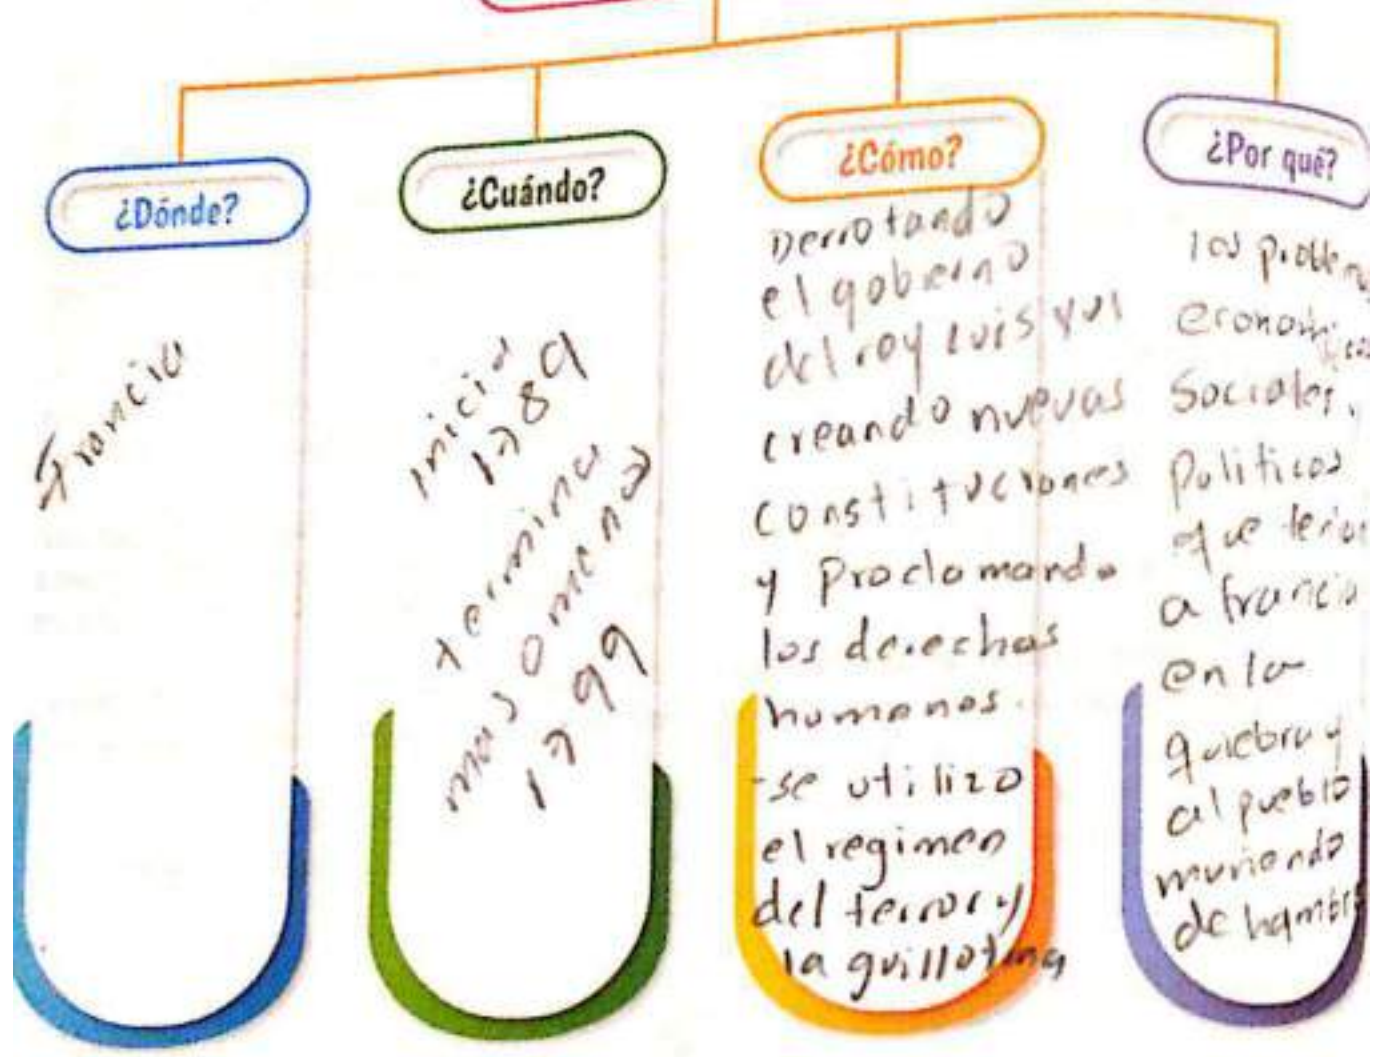 ¿Dónde?
Francia
¿Cuándo?
inicia
1789
termina
mas o menos
1799
¿Cómo?
Derrotando
el gobierno
del rey Luis XVI
creando nuevas
constituciones
y Proclamando
los derechos
humanos.
-se utilizo
el regimen
del terror y
la guillotina
¿Por qué?
los problemas
economicos
Sociales,
Politicos
que tenia
a francia
en la
quiebra y
al pueblo
muriendo
de hambre